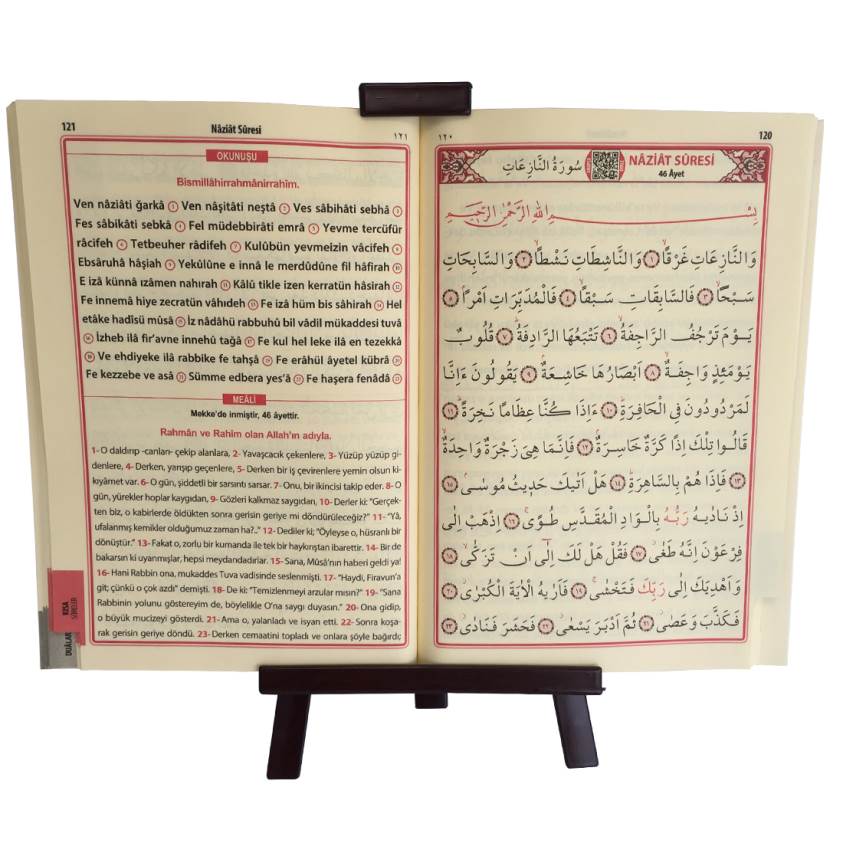 121
Nâziât Sûresi
١٢١
OKUNUŞU
Bismillâhirrahmânirrahîm.
Ven nâziâti ğarkâ 1 Ven nâşitâti neştâ 2 Ves sâbihâti sebhâ 3
Fes sâbikâti sebkâ 4 Fel müdebbirâti emrâ 5 Yevme tercüfür
râcifeh 6 Tetbeuher râdifeh 7 Kulûbün yevmeizin vâcifeh 8
Ebsâruhâ hâşiah 9 Yekûlûne e innâ le merdûdûne fil hâfirah 10
E izâ künnâ izâmen nahırah 11 Kâlû tikle izen kerratün hâsirah 12
Fe innemâ hiye zecratün vâhıdeh 13 Fe izâ hüm bis sâhirah 14 Hel
etâke hadîsü mûsâ 15 İz nâdâhü rabbuhû bil vâdil mükaddesi tuvâ
16 İzheb ilâ fir'avne innehû tağâ 17 Fe kul hel leke ilâ en tezekkâ
18 Ve ehdiyeke ilâ rabbike fe tahşâ 19 Fe erâhül âyetel kübrâ 20
Fe kezzebe ve asâ 21 Sümme edbera yes'â 22 Fe haşera fenâdâ 23
MEÂLİ
Mekke'de inmiştir, 46 âyettir.
Rahmân ve Rahîm olan Allah'ın adıyla.
1- O daldırıp -canları- çekip alanlara, 2- Yavaşcacık çekenlere, 3- Yüzüp yüzüp gi-
denlere, 4- Derken, yarışıp geçenlere, 5- Derken bir iş çevirenlere yemin olsun ki-
kıyâmet var. 6- O gün, şiddetli bir sarsıntı sarsar. 7- Onu, bir ikincisi takip eder. 8- O
gün, yürekler hoplar kaygıdan, 9- Gözleri kalkmaz saygıdan, 10- Derler ki: "Gerçek-
ten biz, o kabirlerde öldükten sonra gerisin geriye mi döndürüleceğiz?" 11- "Yâ,
ufalanmış kemikler olduğumuz zaman ha?.." 12- Dediler ki; "Öyleyse o, hüsranlı bir
dönüştür." 13- Fakat o, zorlu bir kumanda ile tek bir haykırıştan ibarettir. 14- Bir de
bakarsın ki uyanmışlar, hepsi meydandadırlar. 15- Sana, Mûsâ'nın haberi geldi ya!
16- Hani Rabbin ona, mukaddes Tuva vadisinde seslenmişti. 17- "Haydi, Firavun'a
git; çünkü o çok azdı" demişti. 18- De ki: "Temizlenmeyi arzular mısın?" 19- "Sana
Rabbinin yolunu göstereyim de, böylelikle O'na saygı duyasın." 20- Ona gidip,
o büyük mucizeyi gösterdi. 21- Ama o, yalanladı ve isyan etti. 22- Sonra koşa-
rak gerisin geriye döndü. 23- Derken cemaatini topladı ve onlara şöyle bağırdı;
KISA
SÛRELER
DUÂLAR
١٢٠
120
سُورَةُ النَّازِعَاتِ
NÂZİÂT SÛRESİ
46 Âyet
بِسْمِ اللهِ الرَّحْمٰنِ الرَّحِيمِ
وَالنَّازِعَاتِ غَرْقًاۙ ١ وَالنَّاشِطَاتِ نَشْطًاۙ ٢ وَالسَّابِحَاتِ
سَبْحًاۙ ٣ فَالسَّابِقَاتِ سَبْقًاۙ ٤ فَالْمُدَبِّرَاتِ اَمْرًاۢ ٥
يَوْمَ تَرْجُفُ الرَّاجِفَةُۙ ٦ تَتْبَعُهَا الرَّادِفَةُۜ ٧ قُلُوبٌ
يَوْمَئِذٍ وَاجِفَةٌۙ ٨ اَبْصَارُهَا خَاشِعَةٌۢ ٩ يَقُولُونَ ءَاِنَّا
لَمَرْدُودُونَ فِي الْحَافِرَةِۜ ١٠ ءَاِذَا كُنَّا عِظَامًا نَخِرَةًۜ ١١
قَالُوا تِلْكَ اِذًا كَرَّةٌ خَاسِرَةٌۢ ١٢ فَاِنَّمَا هِيَ زَجْرَةٌ وَاحِدَةٌۙ
١٣ فَاِذَا هُمْ بِالسَّاهِرَةِۜ ١٤ هَلْ اَتٰيكَ حَدِيثُ مُوسٰىۢ ١٥
اِذْ نَادٰيهُ رَبُّهُ بِالْوَادِ الْمُقَدَّسِ طُوًىۚ ١٦ اِذْهَبْ اِلٰى
فِرْعَوْنَ اِنَّهُ طَغٰىۘ ١٧ فَقُلْ هَلْ لَكَ اِلٰٓى اَنْ تَزَكّٰىۙ ١٨
وَاَهْدِيَكَ اِلٰى رَبِّكَ فَتَخْشٰىۚ ١٩ فَاَرٰيهُ الْاٰيَةَ الْكُبْرٰىۘ ٢٠
فَكَذَّبَ وَعَصٰىۘ ٢١ ثُمَّ اَدْبَرَ يَسْعٰىۘ ٢٢ فَحَشَرَ فَنَادٰىۘ ٢٣